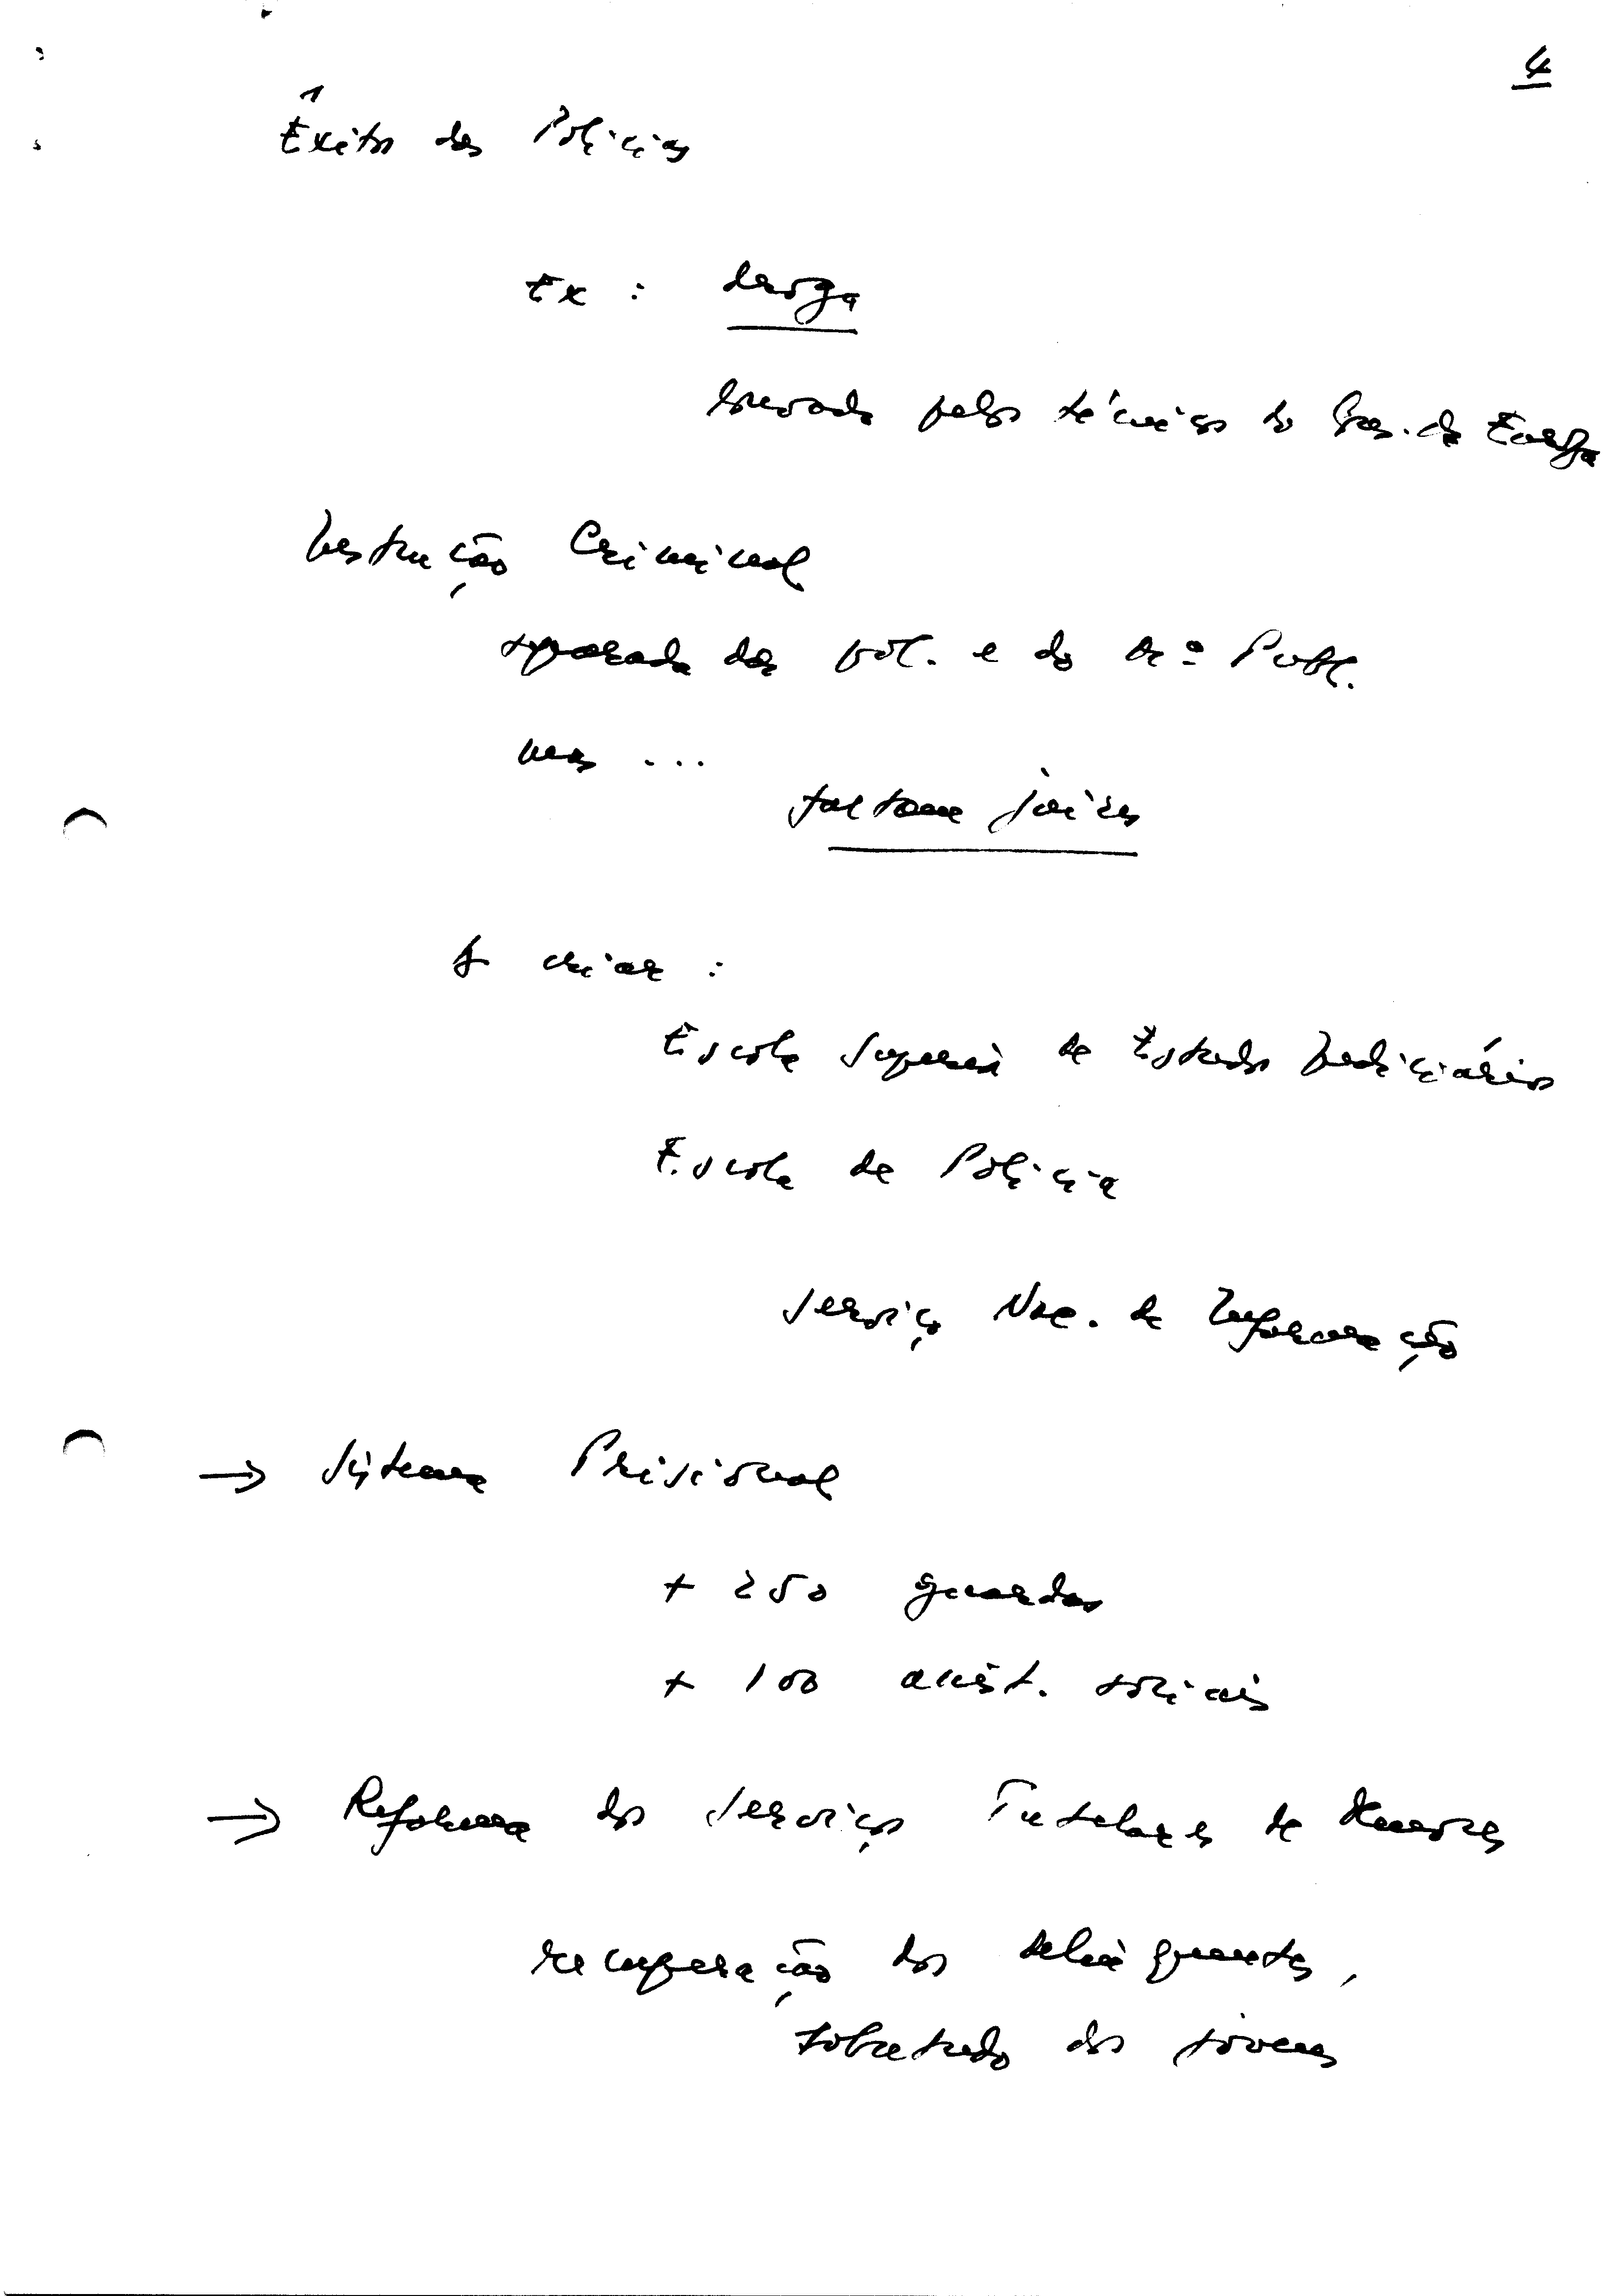 4
Êxitos das Polícias
Ex : droga
louvado pelos técnicos do Cons. da Europa
Instrução Criminal
separada das pol. e do Mº Públ.
mas ...
faltam juízes
A criar :
Escola Superior de Estudos Judiciários
Escola de Polícia
Serviço Nac. de Informação
→ Sistema Prisional
+ 250 guardas
+ 100 assist. sociais
→ Reforma dos Serviços Tutelares de Menores
recuperação dos delinquentes,
sobretudo dos jovens